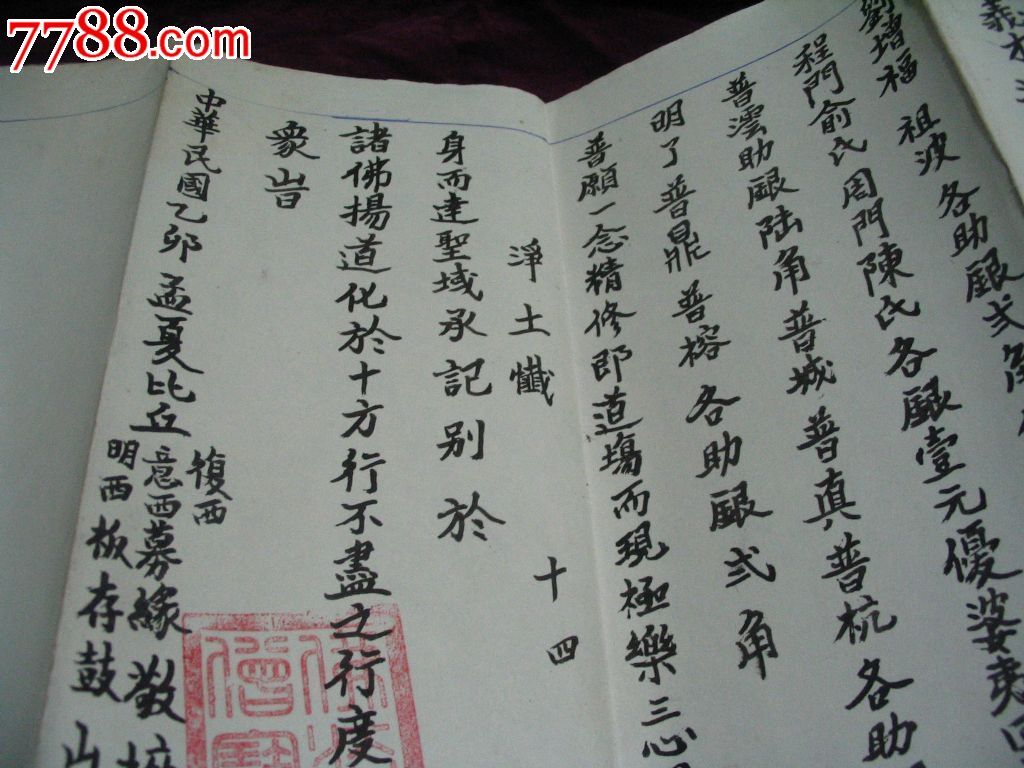 7788.com
義
劉增福 祖波各助銀弍角
程門俞氏周門陳氏各銀壹元優婆夷
普澐助銀陆角普城普真普杭各助
明了普鼎普榕各助銀弍角
善願一念精修即道塲而現極樂三心
淨土懺 十四
身而達聖域承記別於
諸佛揚道化於十方行不盡之行度
衆旹
中華民國乙卯孟夏比丘復西意西明西募緣敬
板存鼓山
佛 僧寶